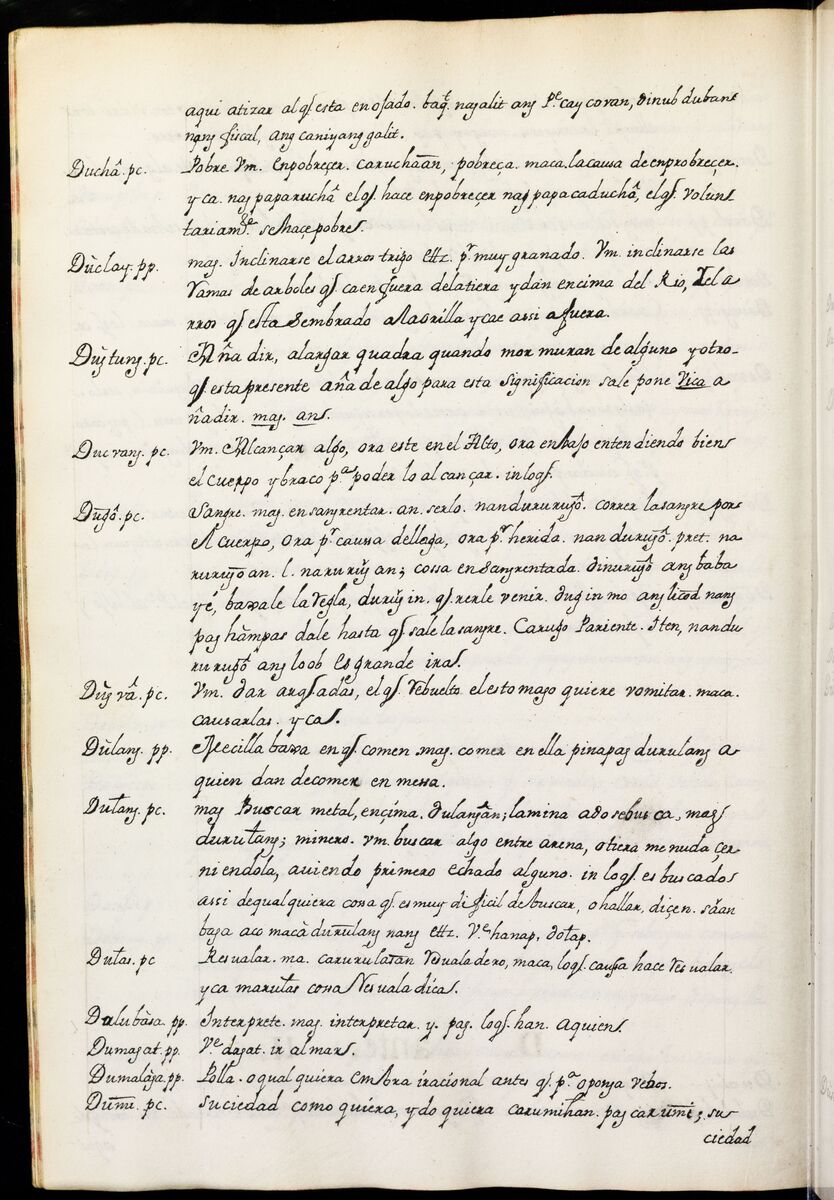 aqui atizar al q̃ esta enojado. baq̃. nagalit ang Pe. cay covan, dinubdubanᵍ
nang fiscal, ang caniyang galit.
Duchâ. pc. Pobre. Vm. Enpobreçer. caruchaan, pobreça. maca. la causa de enprobreçer.
y ca. nagpaparuchâ el q̃ hace enpobreçer nagpapacaduchâ, el q̃ volun
tariamᵗᵉ. se haçe pobre.
Dùclay. pp. mag. Inclinarse el arros trigo ettz. pʳ. muy granado. Vm. inclinarse las
ramas de arboles q̃ caen fuera dela tiera y dan encima del Rio, I el a
rros q̃ esta sembrado a la orilla y cae assi a fuera.
Dug̃tung. pc. Aña dir, alargar quadra quando mor muran de alguno y otro.
q̃ esta presente añade algo para esta significacion sale pone Vica a
ñadir. mag. an.
Ducvang. pc. Vm. Alcançar algo, ora este en el Alto, ora en bajo entendiendo bien
el cuerpo y braco pᵃ poder lo alcançar. in lo q̃.
Dug̃ô. pc. Sangre. mag. ensangrentar. an. serlo. nandururugô. correr la sangre por
el cuerpo, ora pʳ. caussa de llaga, ora pʳ. herida. nandurugô. pret. na
rurugoan. l. narurug̃an; cossa ensangrentada. dinurugô ang baba
yé, baxale la regla, durugin. q̃ rerle venir. dugin mo ang licod nang
pag hàmpas dale hasta q̃ sale la sangre. Carugo Pariente. Iten, nandu
rurugô ang loob Es grande ira.
Dug̃vâ. pc. Vm. dar arqadas, el q̃ rebuelto el estomago quiere vomitar. maca.
causarlas. y ca.
Dùlang. pp. Mecilla baxa en q̃ comen. mag. comer en ella pinapag durulang a
quien dan de comer en messa.
Dulang. pc. mag Buscar metal, ençima. dulang̃an; la mina ado se busca, mag
durulang; minero. vm. buscar algo entre arena, o tiera menuda çer
niendola, auiendo primero echado alguno. in lo q̃ es buscado
assi de qualquiera cosa q̃ es muy dificil de buscar, o hallar, diçen. sāan
baga aco macà durulang nang ettz. Vᵉ hanap. dotap.
Dulas. pc Resualar. ma. carurulasan resualadero, maca, lo q̃ causa hace resualar.
y ca marulas cossa Resualadica.
Dalubàsa. pp. Interprete. mag. interpretar. y. pag. lo q̃. han. a quien.
Dumagat. pp. Vᵉ dagat. ir al mar.
Dumalàga. pp. Polla. o qual quiera Embra iracional antes q̃ pᵃ o ponga vebos.
Dumi. pc. suciedad como quiera, y do quiera carumihan. pag carumi; su
ciedad